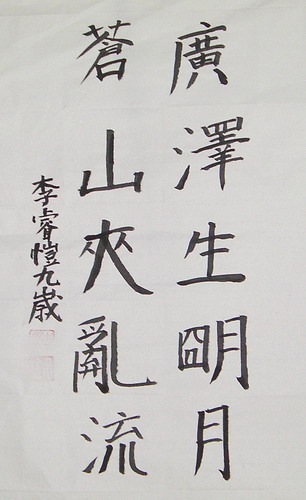 廣澤生明月
蒼山夾亂流
李睿愷九歲